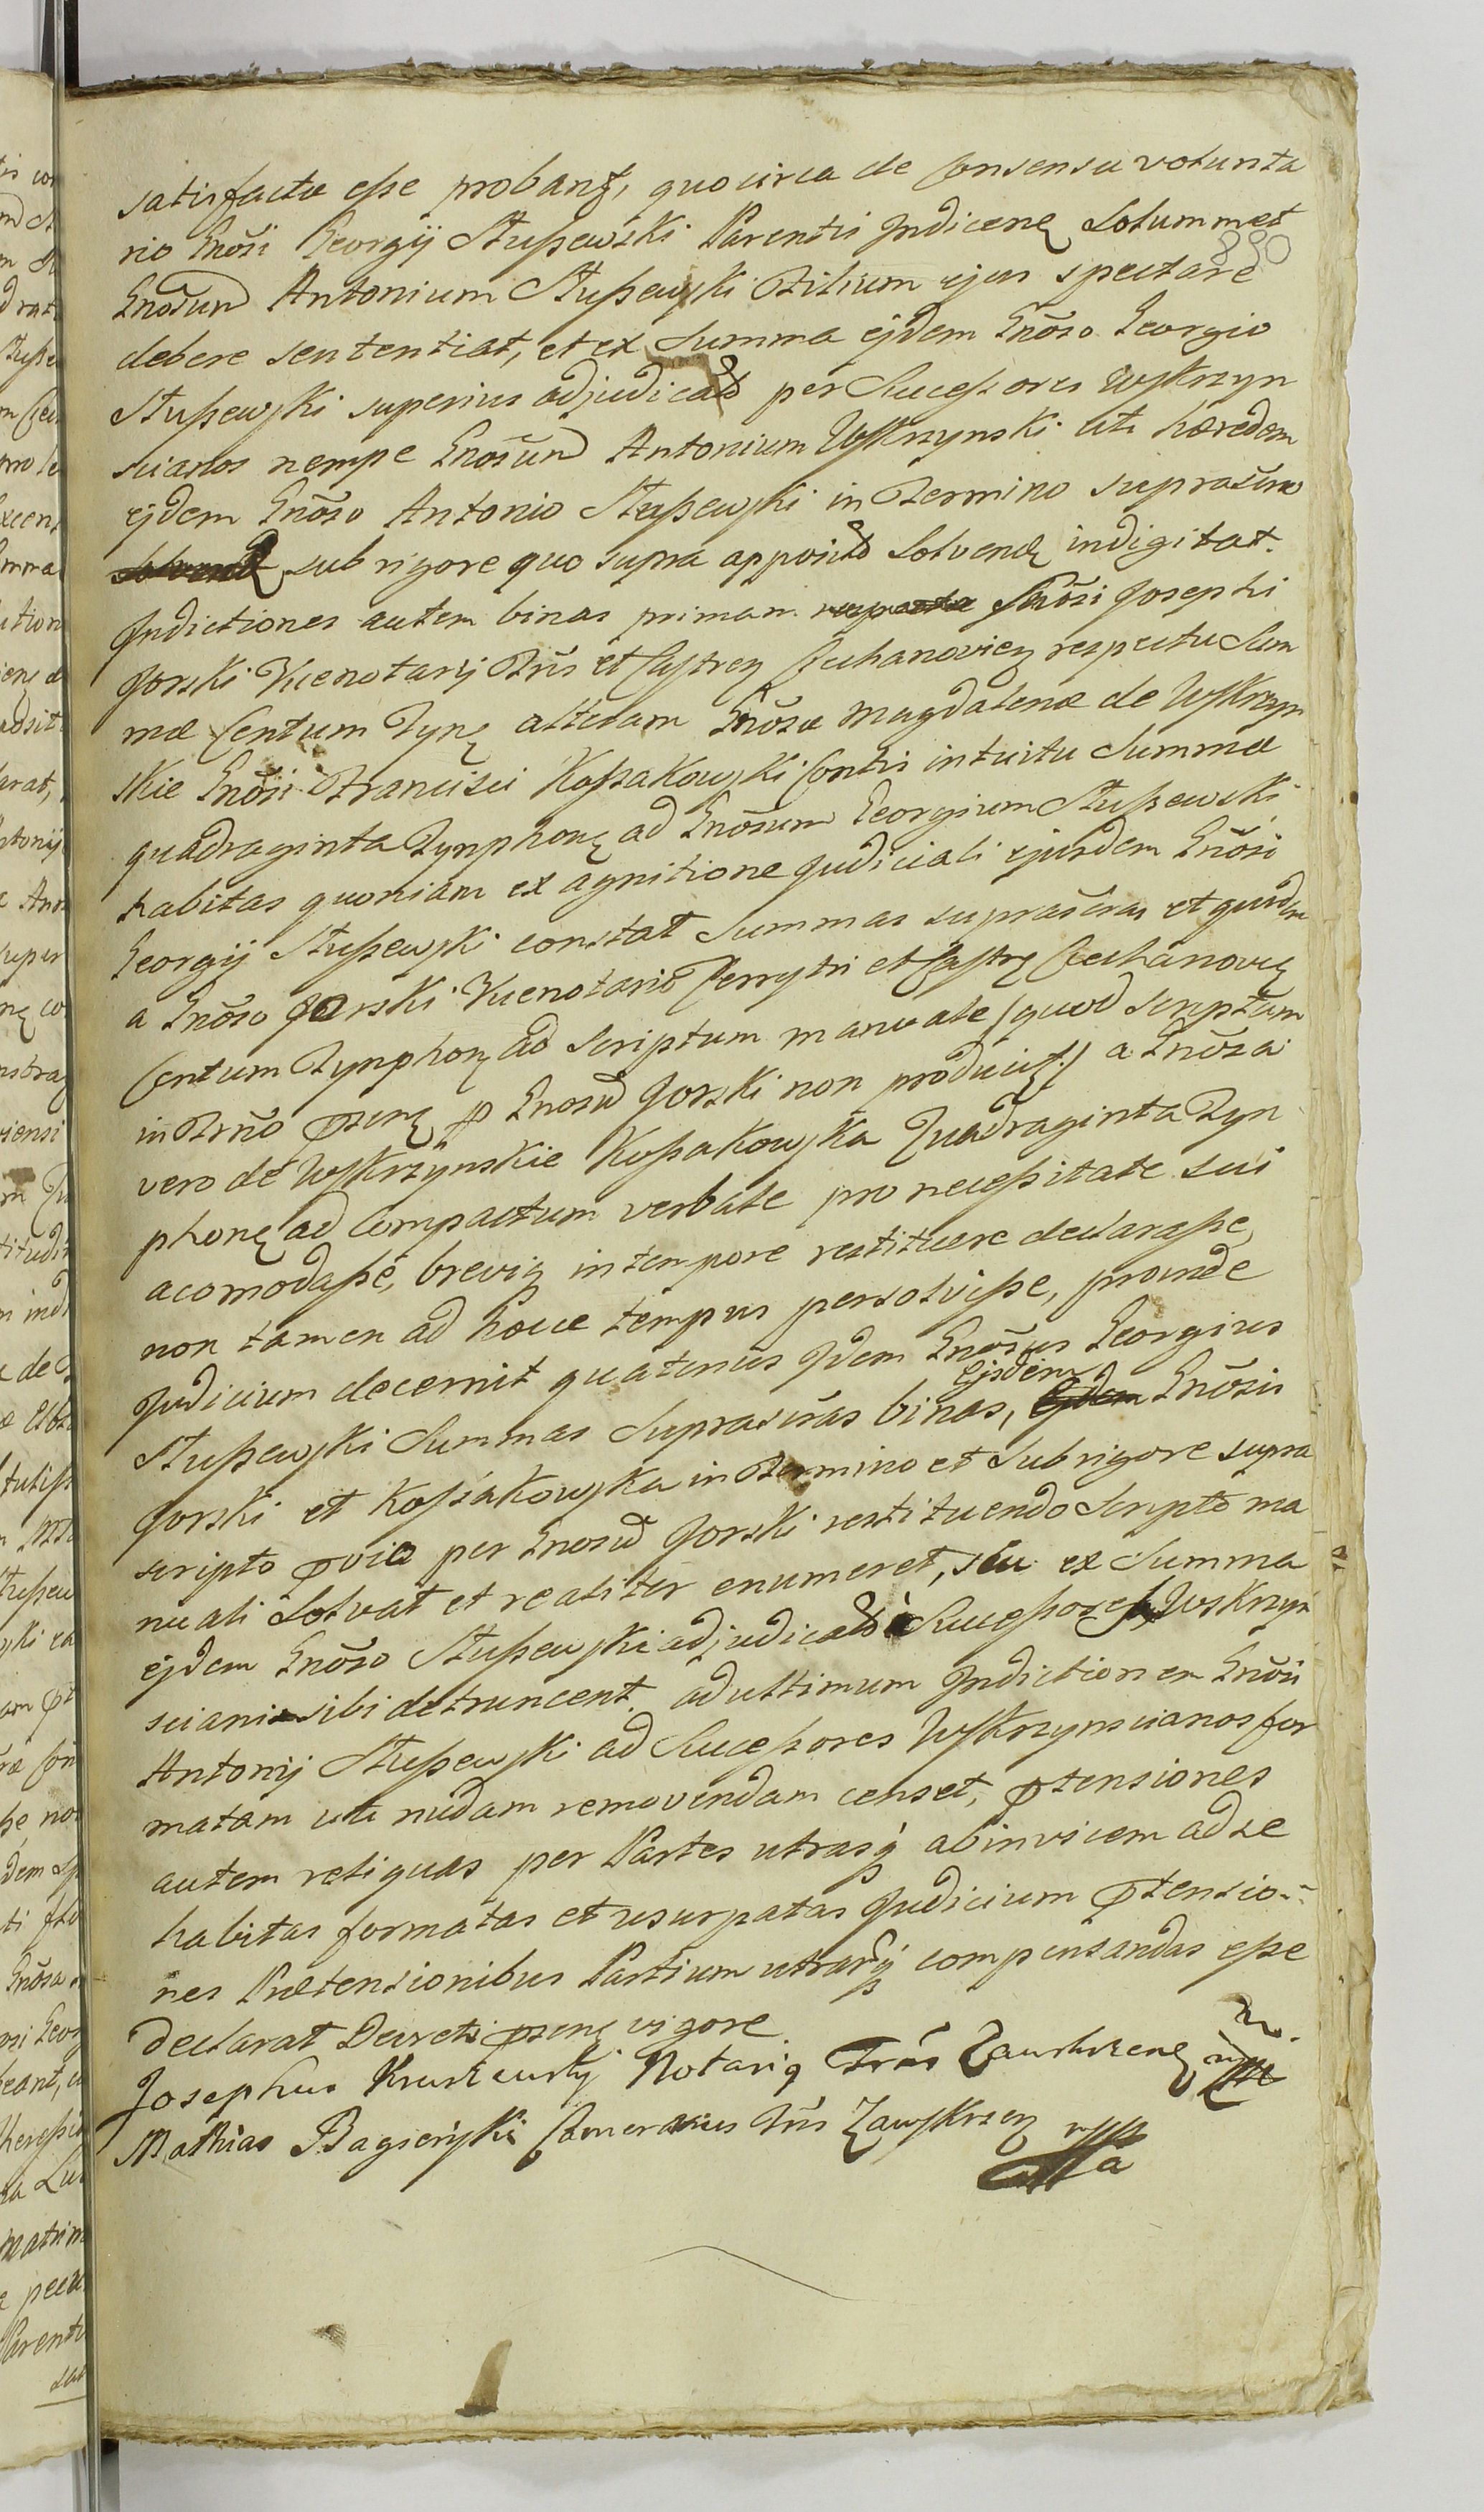 satisfacta esse probant, quocirca de Consensu volunta
rio Gnosi Georgij Stuszewski Parentis Indicentis Solummet
880
Gnosum Antonium Stuszewski Filium ejus spectare
debere sententiat, et ex Summa ejdem Gnoso Georgio
Stuszewski superius adjudicata per Successores Wskrzyn
scianos nempe Gnosum Antonium Wskrzynski uti hæredem
ejdem Gnoso Antonio Stuszewski in Termino suprascripto
solvend sub rigore quo supra apposito Solvend indigitat.
Indictiones autem binas primam Gnosi Josephi
Gorski Vicenotarij Trris et Castren Ciechanovien respectu Sum
mæ Centum Tynf alteram Gnosæ Magdalenæ de Wskrzyn
skie Gnosi Francisci Kossakowski Contis intuitu Summæ
quadraginta Tynphon ad Gnosum Georgium Stuszewski
habitas quoniam ex agnitione Judiciali ejusdem Gnosi
Georgij Stuszewski constat Summas suprascriptas et quidem
a Gnoso Gorski Vicenotario Terrstri et Castr Ciechanovien
Centum Tynphon ad Scriptum manuale (quod Scriptum
in Trno præsen per Gnosum Gorski non producit) a Gnosa
vero de Wskrzynskie Kossakowska Quadraginta Tyn
phon ad Compactum verbale pro necessitate sui
acomodasse, brevig in tempore restituere declarasse,
non tamen ad hocce tempus persolvisse, proinde
Judicium decernit quatenus Idem Gnosus Georgius
ejsdem
Stuszewski Summas Suprascriptas binas, ejdem Gnosis
Gorski et Kossakowska in Termino et Sub rigore supra
scripto prævio per Gnosum Gorski restituendo Scripto ma
nuali Solvat et realiter enumeret, seu ex Summa
ejdem Gnoso Stuszewski adjudicata Successores Wskrzyn
sciani sibi detruncent. ad ultimum Indictionem Gnosi
Antonij Stuszewski ad Successores Wskrzynscianos for
matam uti nudam removendam censet, prætensiones
autem reliquas per Partes utrasq abinvicem ad se
habitas formatas et usurpatas Judicium prætensio
nes Prætensionibus Partium utrarq compensandas esse
declarat Decreti præsen vigore
Josephus Notariq Trris Zawskrzen mp
Mathias Bagieński Camerarius Trris Zawskrzen mppa